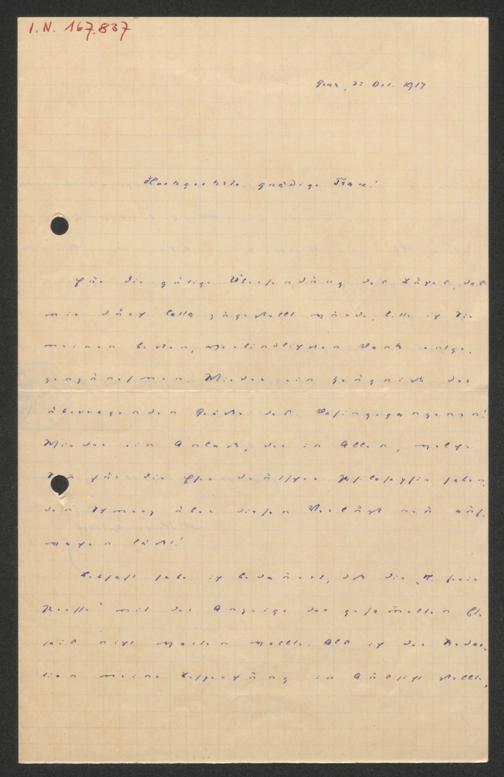 I.N. 167.837
Graz, 23 Dez. 1917
Hochgeehrte, gnädige Frau!
Für die gütige Übersendung des Bildes, das
mir durch zugestellt wurde, bitte ich Sie
meinen besten, verbindlichsten Dank entge-
genzunehmen. Wieder ein Zeugnis der
überragenden Größe des Dahingegangenen!
Wieder ein Anlass, der in Allen, welche
für die Ehre deutscher Philosophie haben,
den Schmerz über diesen Verlust neu auf-
wachen lässt!
Lebhaft habe ich bedauert, dass die „N. freie
Presse“ mit der Anzeige der gesammelten
nicht warten wollte. Als ich der Redak-
tion meine Besprechung in Aussicht stellte,